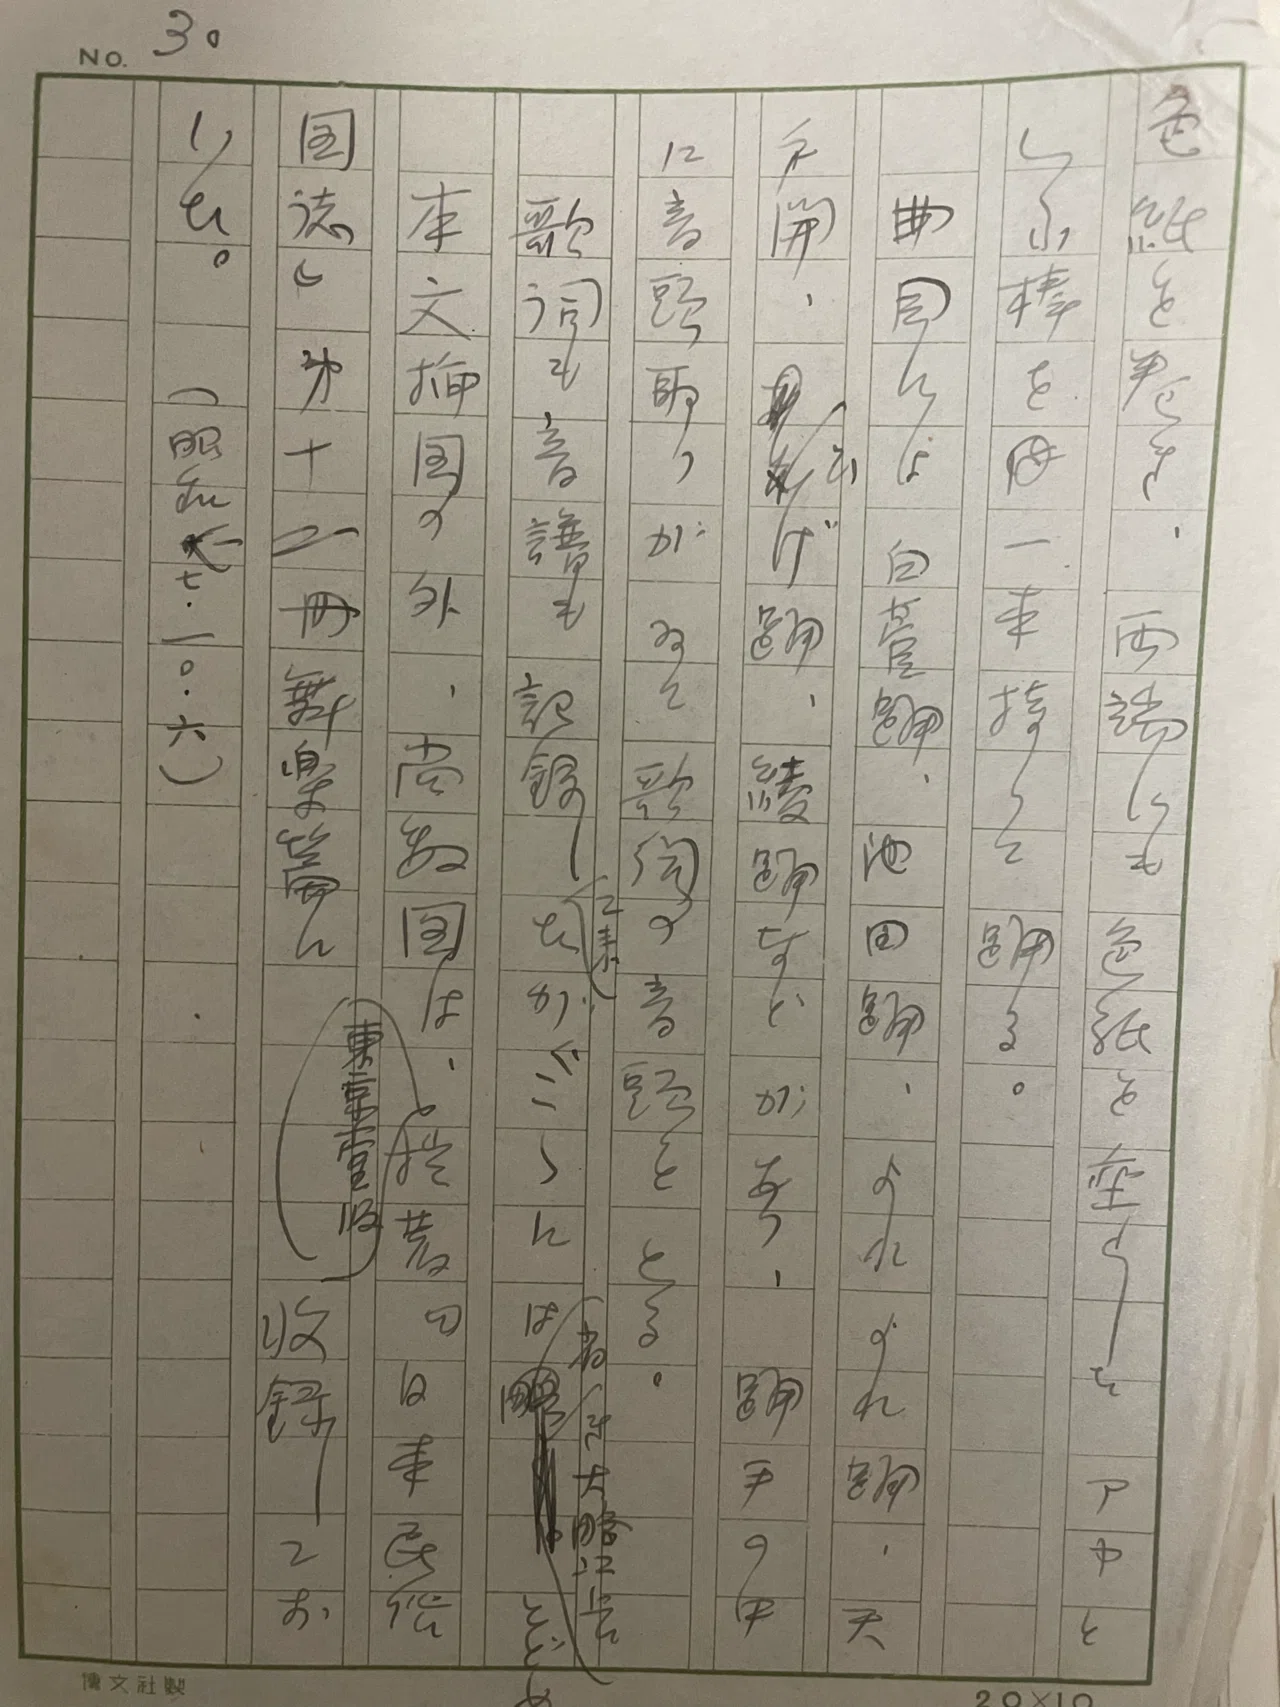 NO. 30
色紙を巻き、両端にも色紙を垂らした アヤと
いふ棒を毎一本持つて踊る。
曲目には白鷺踊、池田踊、よれよれ踊、天
の開、あひあげ踊、綾踊などがあり、踊手の中
に音頭取りがゐて歌詞の音頭をとる。
歌詞も音譜も記録した(て来た)がごゝには(省いて大略に止)とどめ
本文挿図の外、尚数図は、拙著日本民俗
図誌の第十二冊舞楽篇に収録してお
いた。
(昭和七・一〇・六)
博文社製
20×10